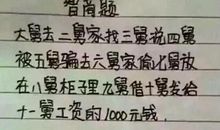 智商题
大舅去二舅家找三舅说四舅
被五舅骗去六舅家偷七舅放
在八舅柜子里九舅借十舅发给
十一舅工资的1000元钱